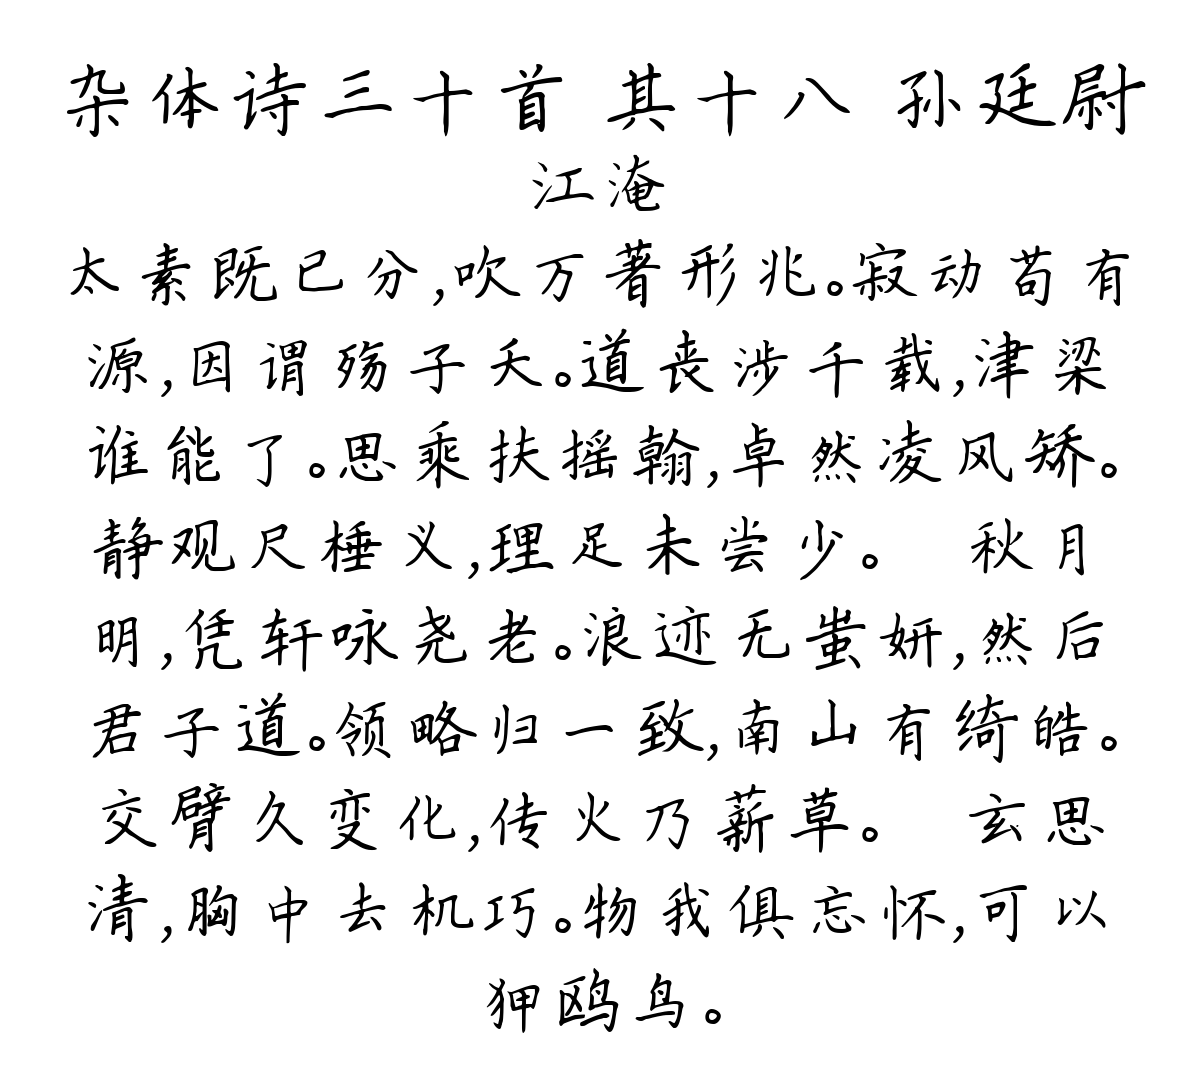 杂体诗三十首 其十八 孙廷尉
江淹
太素既已分,吹万著形兆。寂动苟有
源,因谓殇子夭。道丧涉千载,津梁
谁能了。思乘扶摇翰,卓然凌风矫。
静观尺棰义,理足未尝少。 秋月
明,凭轩咏尧老。浪迹无蚩妍,然后
君子道。领略归一致,南山有绮皓。
交臂久变化,传火乃薪草。 玄思
清,胸中去机巧。物我俱忘怀,可以
狎鸥鸟。